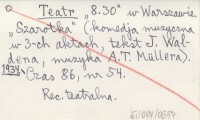 Teatr "8.30" w Warszawie.
"Szarotka" (komedja muzyczna
w 3-ch aktach, tekst J. Wal-
dena, muzyka A.T. Müllera).
1934
Czas 86, nr 54.
Rec. teatralna.